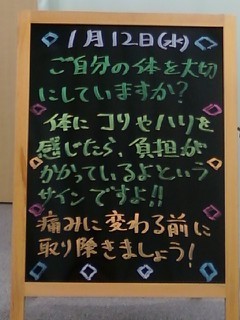 1月12日(水)
ご自分の体を大切
にしていますか?
体にコリやハリを
感じたら、負担が
かかっているよという
サインですよ!!
痛みに変わる前に
取り除きましょう!